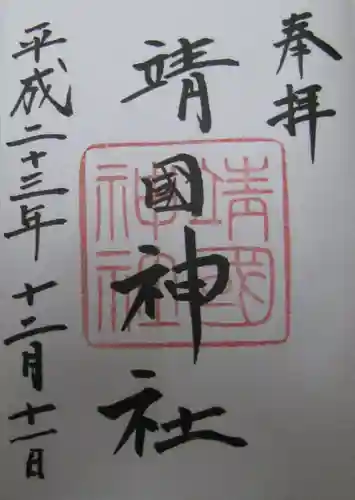 奉拝
靖國神社
靖國
神社
平成二十三年 十二月十一日